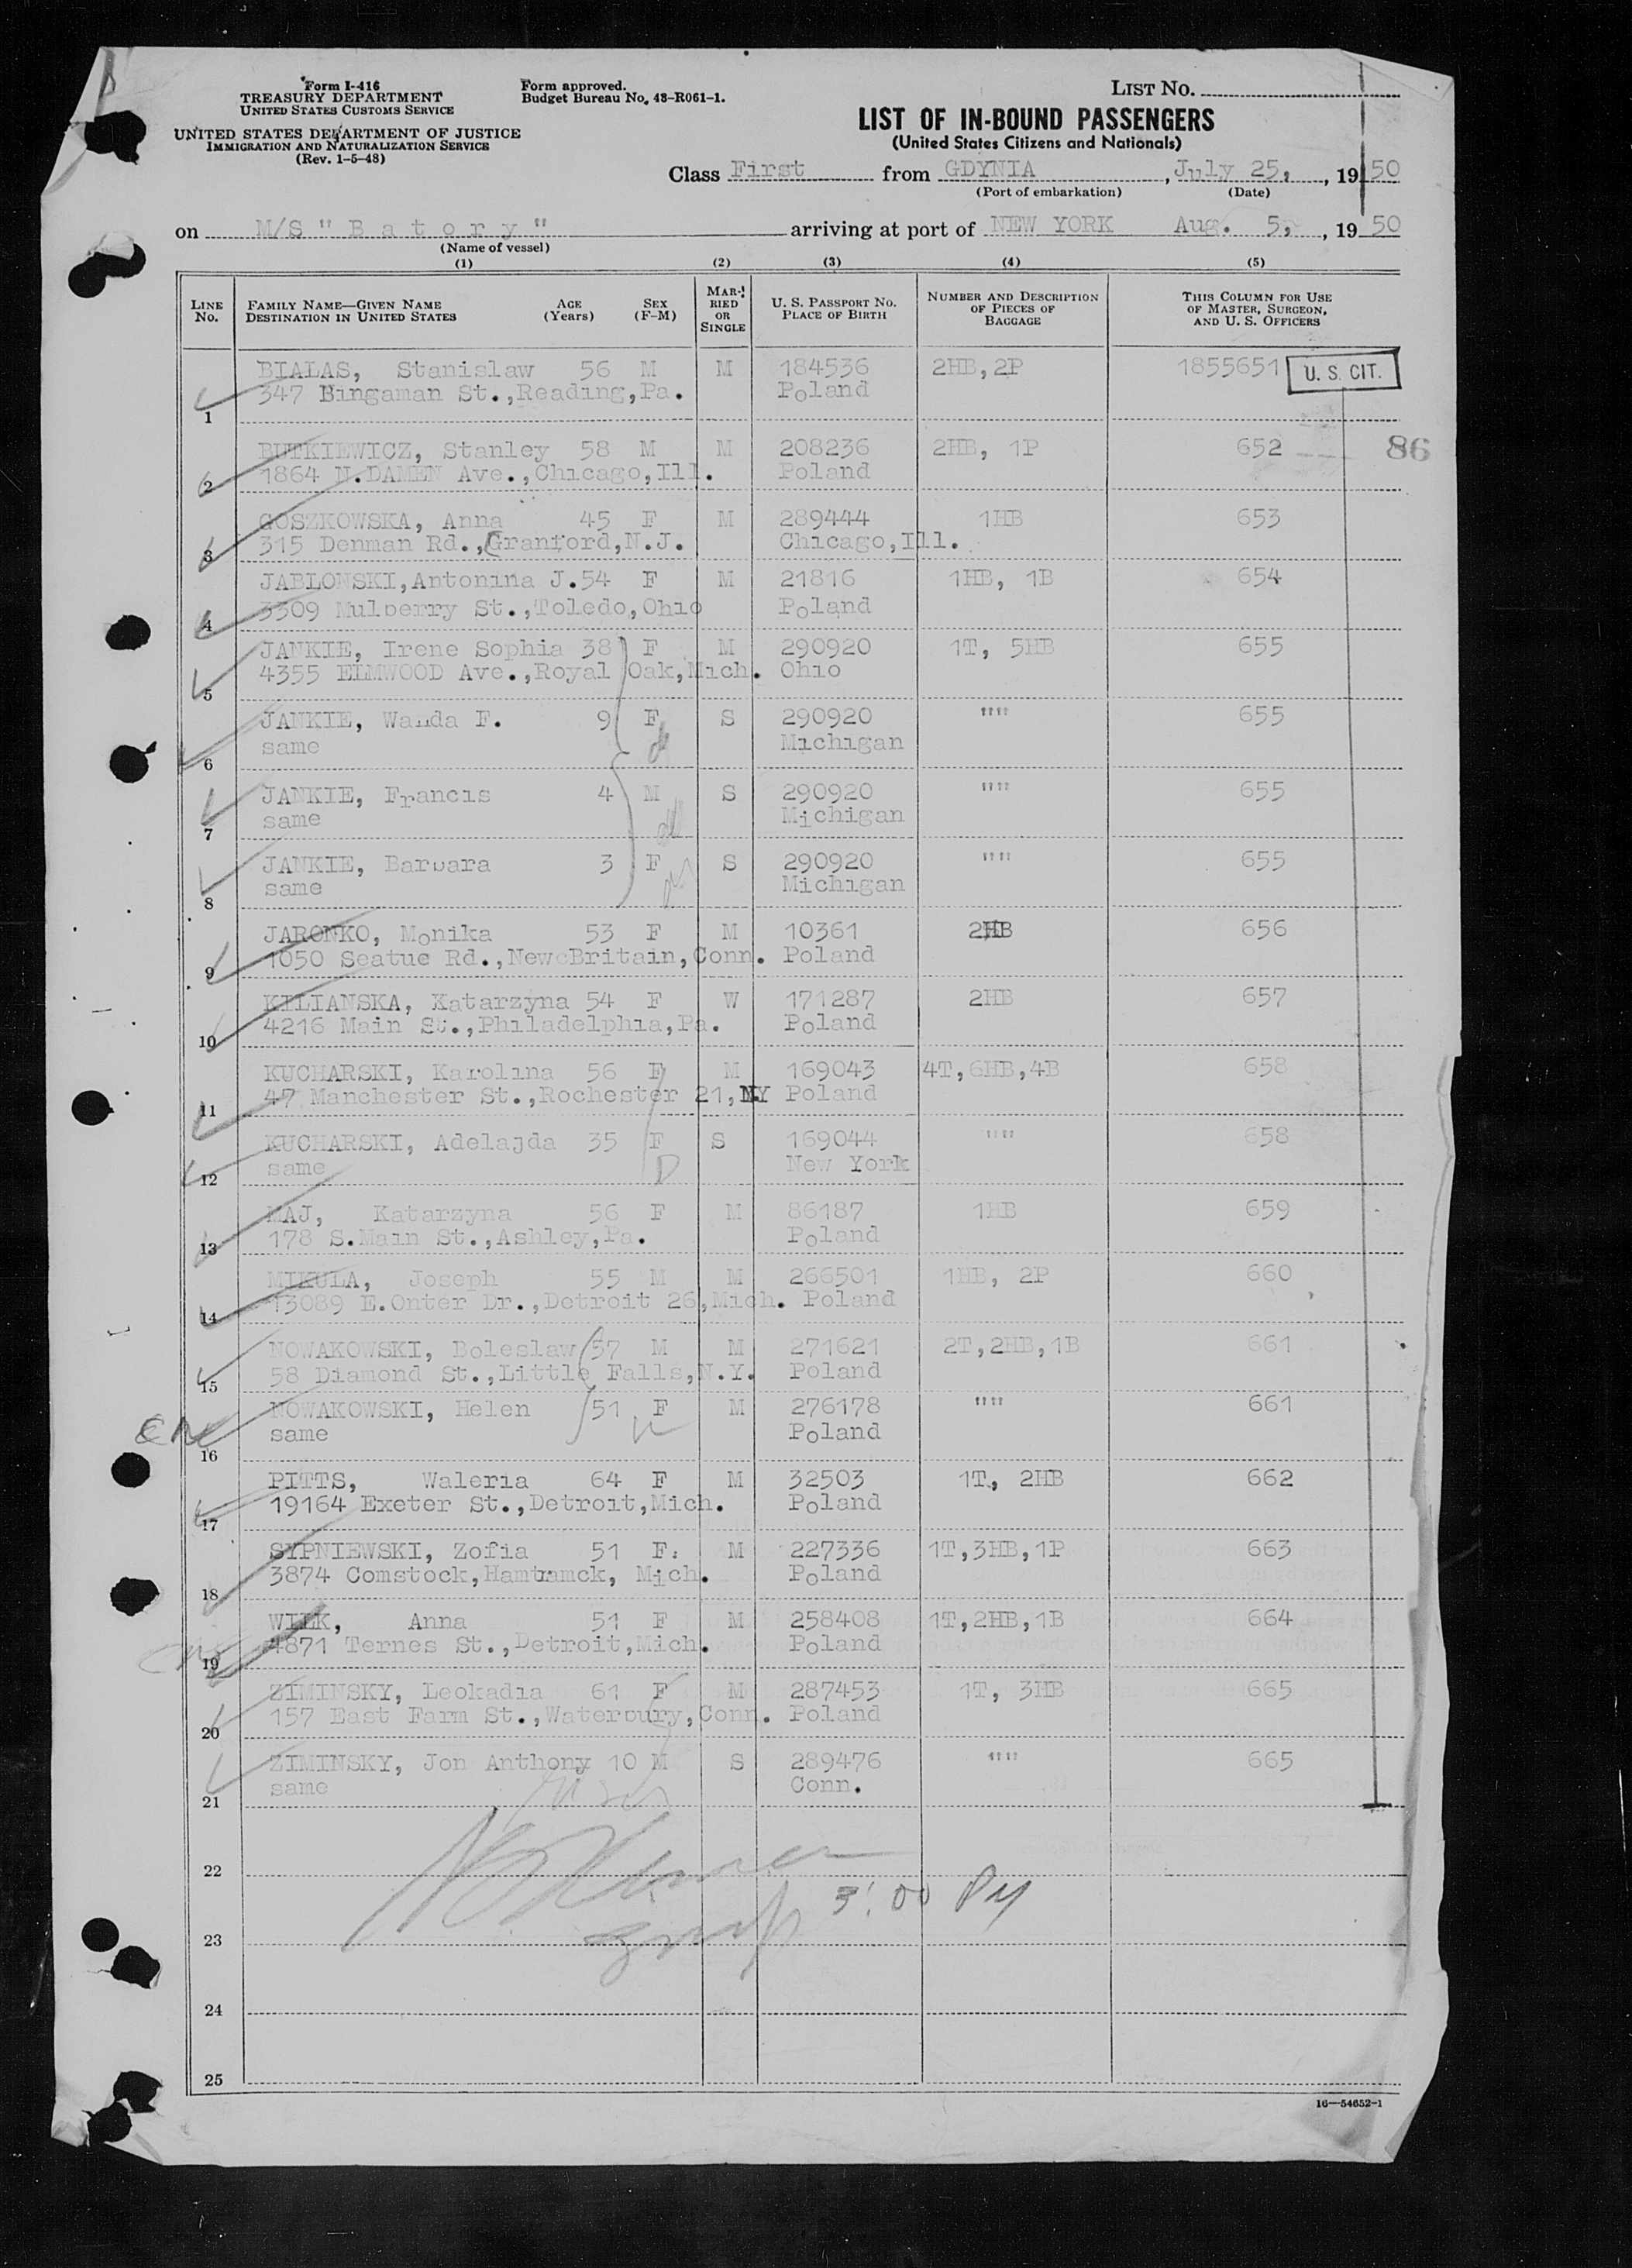 Form I-416
TREASURY DEPARTMENT
UNITED STATES CUSTOMS SERVICE
UNITED STATES DEPARTMENT OF JUSTICE
IMMIGRATION AND NATURALIZATION SERVICE
(Rev. 1-5-48)
Form approved.
Budget Bureau No. 43-R061-1.
LIST NO.
LIST OF IN-BOUND PASSENGERS
(United States Citizens and Nationals)
Class First from GDYNIA, July 25, , 19 50
(Port of embarkation) (Date)
on M/S " B a t o r y " arriving at port of NEW YORK Aug. 5, , 19 50
(Name of vessel)
(1) (2) (3) (4) (5)
LINE NO. FAMILY NAME—GIVEN NAME DESTINATION IN UNITED STATES AGE (Years) SEX (F-M) MAR-RIED OR SINGLE U. S. PASSPORT NO. PLACE OF BIRTH NUMBER AND DESCRIPTION OF PIECES OF BAGGAGE THIS COLUMN FOR USE OF MASTER, SURGEON, AND U. S. OFFICERS
BIALAS, Stanislaw 56 M M 184536 2HB,2P 1855651 U. S. CIT.
347 Bingaman St.,Reading,Pa. Poland
1
BUTKIEWICZ, Stanley 58 M M 208236 2HB, 1P 652 86
1864 N.DAMEN Ave.,Chicago,Ill. Poland
2
GOSZKOWSKA, Anna 45 F M 289444 1HB 653
315 Denman Rd.,Cranford,N.J. Chicago,Ill.
3
JABLONSKI,Antonina J.54 F M 21816 1HB, 1B 654
3309 Mulberry St.,Toledo,Ohio Poland
4
JANKIE, Irene Sophia 38 F M 290920 1T, 5HB 655
4355 ELMWOOD Ave.,Royal Oak,Mich. Ohio
5
JANKIE, Wanda F. 9 F S 290920 "" 655
same Michigan
6
JANKIE, Francis 4 M S 290920 "" 655
same Michigan
7
JANKIE, Barbara 3 F S 290920 "" 655
same Michigan
8
JARONKO, Monika 53 F M 10361 2HB 656
1050 Seatue Rd.,New Britain,Conn. Poland
9
KILIANSKA, Katarzyna 54 F W 171287 2HB 657
4216 Main St.,Philadelphia,Pa. Poland
10
KUCHARSKI, Karolina 56 F M 169043 4T,6HB,4B 658
47 Manchester St.,Rochester 21,NY Poland
11
KUCHARSKI, Adelajda 35 F S 169044 "" 658
same New York
12
MAJ, Katarzyna 56 F M 86187 1HB 659
178 S.Main St.,Ashley,Pa. Poland
13
MIKULA, Joseph 55 M M 266501 1HB, 2P 660
13089 E.Onter Dr.,Detroit 26,Mich. Poland
14
NOWAKOWSKI, Boleslaw 57 M M 271621 2T,2HB,1B 661
58 Diamond St.,Little Falls,N.Y. Poland
15
NOWAKOWSKI, Helen 51 F M 276178 "" 661
same Poland
16
PITTS, Waleria 64 F M 32503 1T, 2HB 662
19164 Exeter St.,Detroit,Mich. Poland
17
SYPNIEWSKI, Zofia 51 F M 227336 1T,3HB,1P 663
3874 Comstock,Hamtramck, Mich. Poland
18
WILK, Anna 51 F M 258408 1T,2HB,1B 664
4871 Ternes St.,Detroit,Mich. Poland
19
ZIMINSKY, Leokadia 61 F M 287453 1T, 3HB 665
157 East Farm St.,Waterbury,Conn. Poland
20
ZIMINSKY, Jon Anthony 10 M S 289476 "" 665
same Conn.
21
22
3:00 PM
23
24
25
16—54652-1